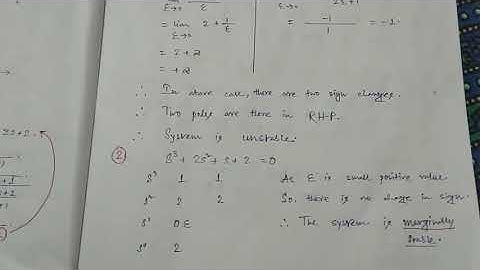 ε→0 ε
= lim 2 + 1/ε
ε→0
= 2 + ∞
= +∞
ε→0 2s+1
= -1/1 = -1.
∴ In above case, there are two sign changes.
∴ Two poles are there in RHP.
∴ System is unstable.
② s³ + 2s² + s + 2 = 0
s³ 1 1
s² 2 2
s¹ 0 ε
s⁰ 2
As ε is small positive value
So, there is no change in sign.
∴ The system is marginally
stable.